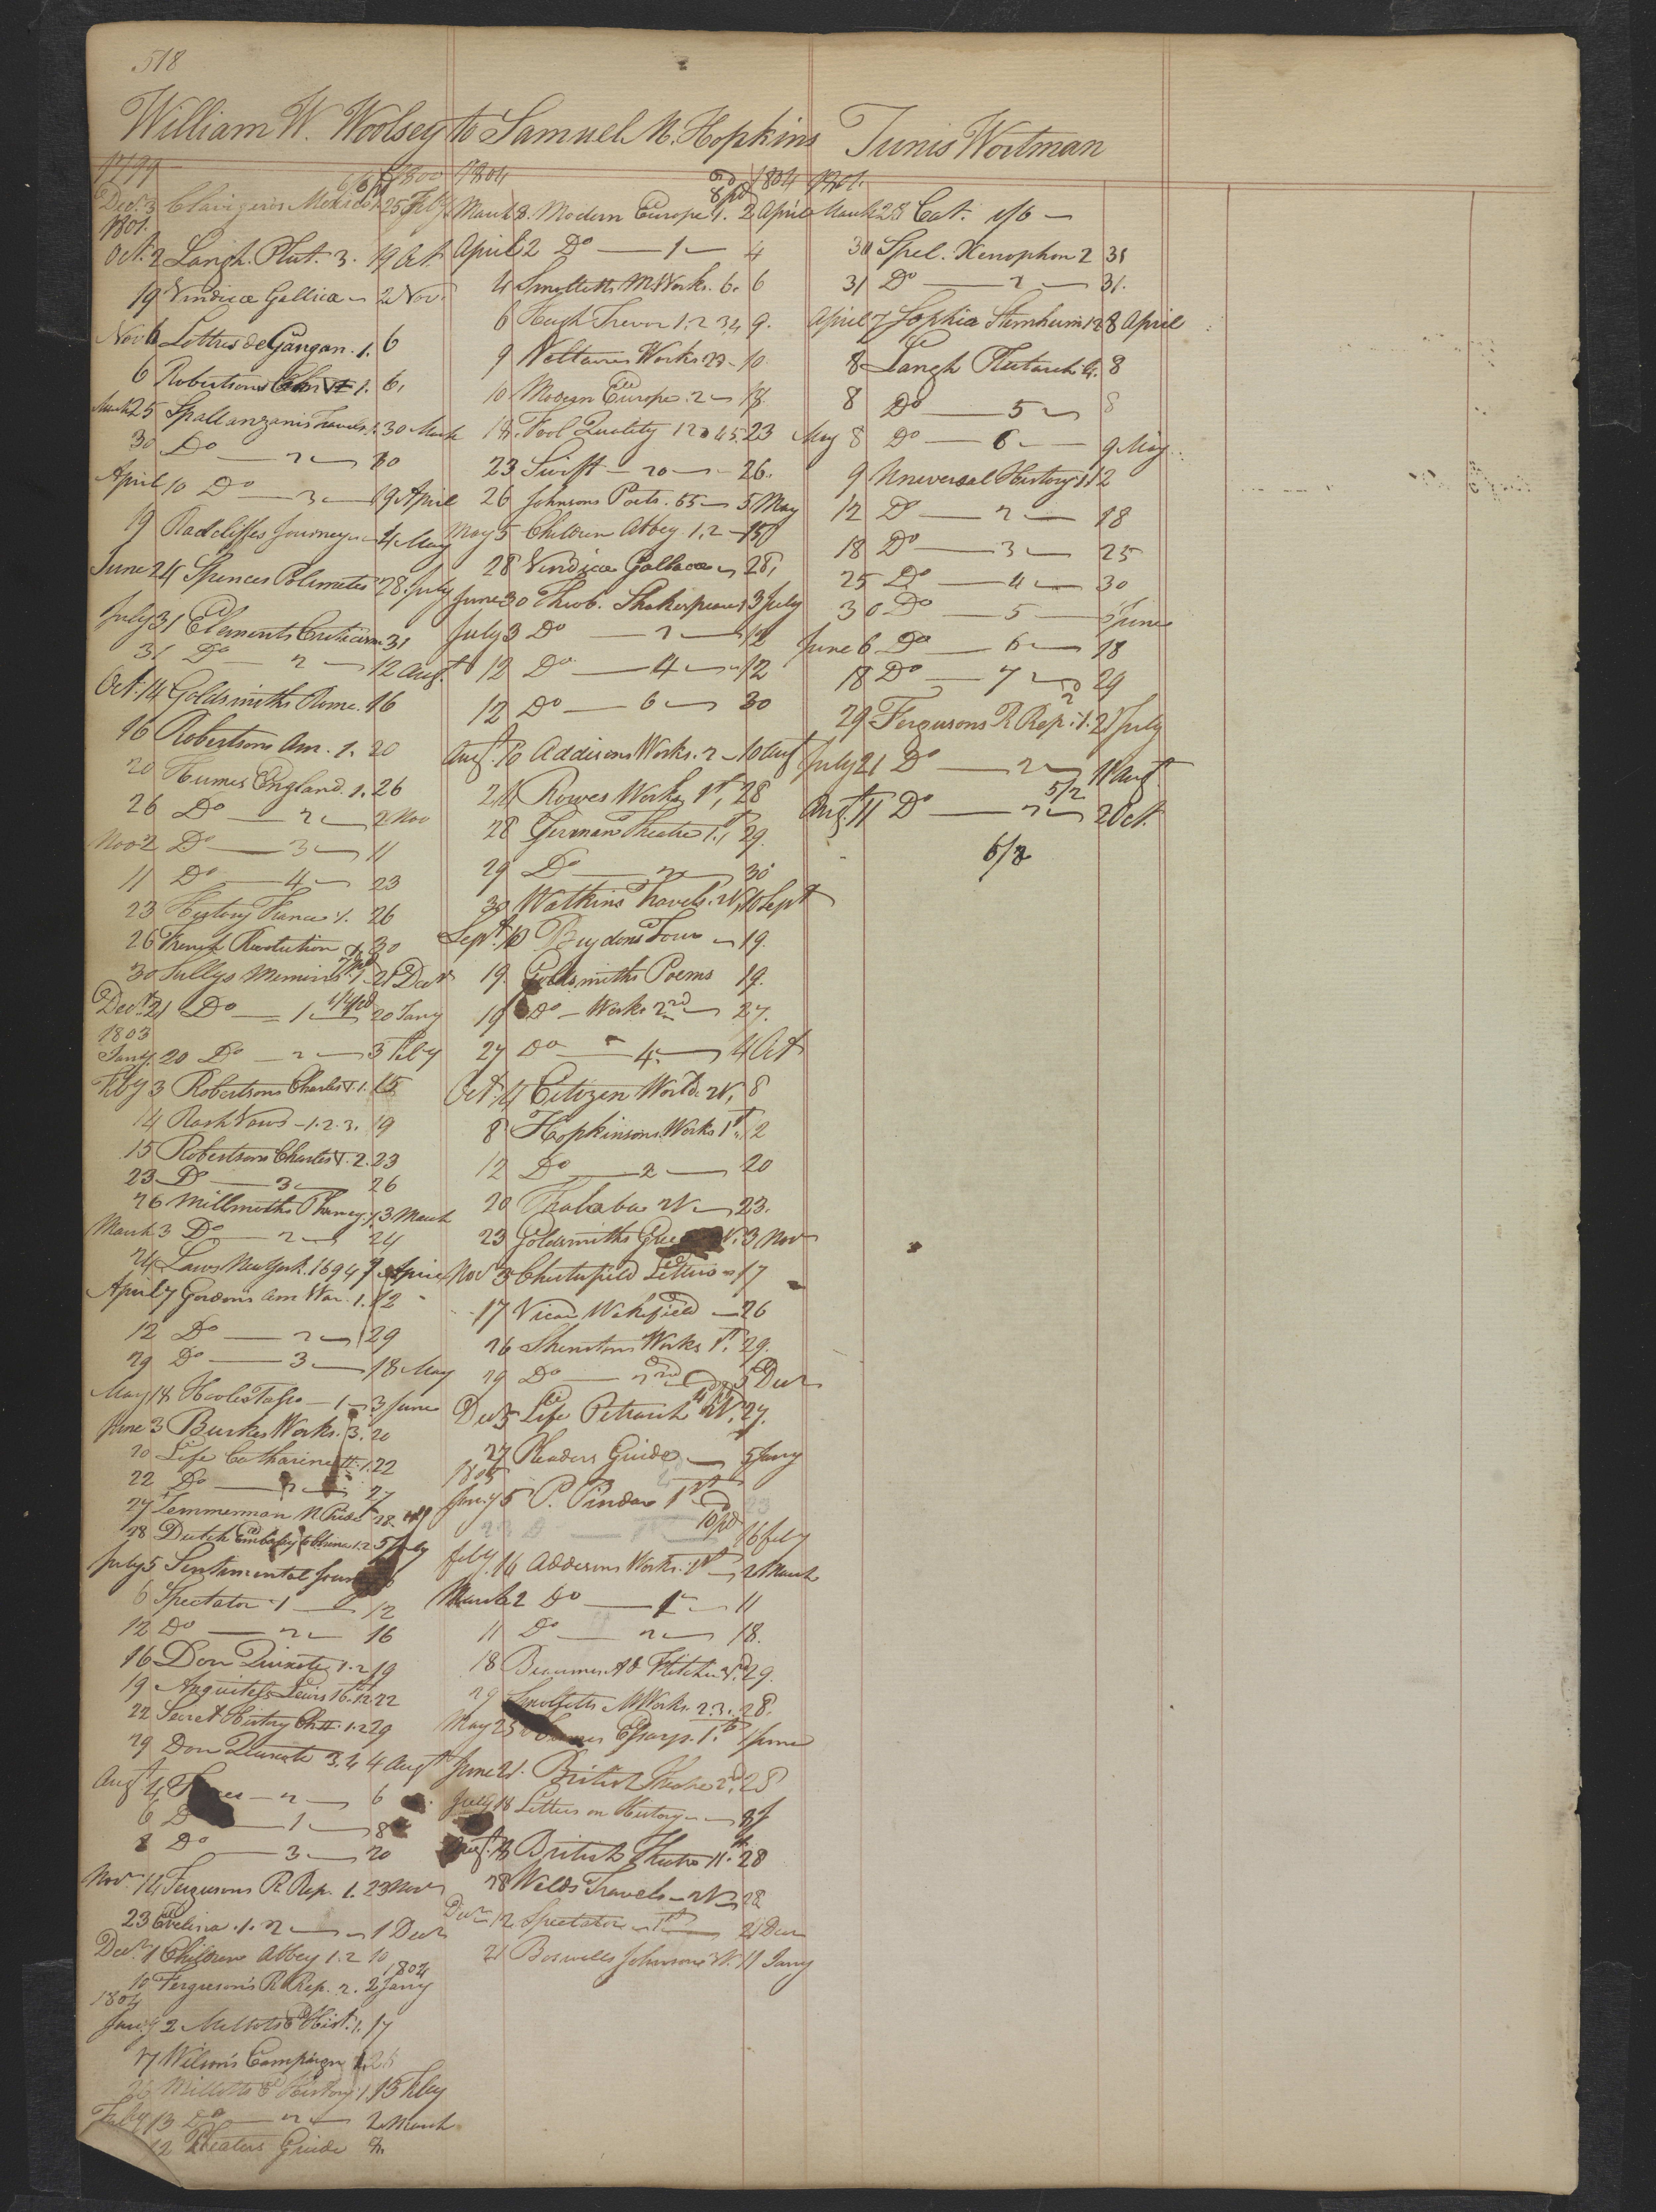 518
William W. Woolsey to Samuel M. Hopkins
1799 1800
Decr. 3 Clavigero's Mexico 25 Feby
1801.
Oct. 2 Langh. Plut. 3. 19 Oct.
19 Vindicæ Gallica 2 Nov.
Nov 6 Lettres de Gangan. 1. 6
6 Robertsons 1. 6.
March 25 Spallanzanis Travels. 1. 30 March
30 Do 2 30
April 10 Do 3 19 April
19 Radcliffes Journey 4 May
June 24 Spences Polimetis 28 July
July 31 Elements Criticism 31
31 Do 2 12 Augt.
Oct. 14 Goldsmiths Rome. 16
16 Robertsons Am. 1. 20
20 Humes England. 1. 26
26 Do 2 2 Nov
Nov 2 Do 3 11
11 Do 4 23
23 History France 1. 26
26 French Revolution 30
30 Sullys Memoirs 1 21 Decr
Decr. 21 Do 1 20 Jany
1803
Jany. 20 Do 2 3 Feby
Feby 3 Robertsons Charles V. 1. 15
14 Rash Vows 1. 2. 3. 19
15 Robertsons Charles V. 2. 23
23 Do 3 26
26 Millmoths Pliney. 1. 3 March
March 3 Do 2 24
24 Laws New York. 1694 7 April
April 7 Gordons Am War. 1. 12
12 Do 2 29
29 Do 3 18 May
May 18 Hooles Tasso 1 3 June
June 3 Burkes Works. 3. 20
20 Life Catharine II. 1. 22
22 Do 2 27
27 Zemmerman N Pride 28
28 Dutch Embassy to China 1. 2 5 July
July 5 Sentimental Jour
6 Spectator 1 12
12 Do 2 16
16 Don Quixote 1. 2 19
19 Anquitels Lewis 16th 1. 2. 22
22 Secret History Ch II. 1. 2 29
29 Don Quixote 3. 4 4 Augt
Augt. 4 2 6
6 D 1 8
8 Do 3 20
Novr. 14 Fergusons R. Rep. 1. 23 Novr
23 Evelina. 1. 2 1 Decr
Decr. 1 Children Abbey 1. 2 10
1804
10 Ferguson's R Rep. 2. 2 Jany
1804
Jany 2 Millots E Hist. 1. 17
17 Wilson's Campaign 1. 26
26 Millotts E History 1. 13 Feby
Feby 13 Do 2 2 March
12 Pleaders Guide
1804 1804
8 pd
March 8. Modern Europe 1. 2 April
April 2 Do 1 4
4 Smolletts M Works. 6. 6
6 Hugh Trevor 1. 2 3. 4 9.
9 Voltaires Works 27 10
10 Modern Europe. 2 18
18. Fool Quality 1 2 3 4 5. 23
23 Swift 20 26.
26 Johnsons Poets. 55 5 May
May 5 Children Abbey 1. 2 15
28 Vindicæ Gallicæ 28,
June 30 Theob. Shakespeare 1 3 July
July 3 Do 2 12
12 Do 4 12
12 Do 6 30
Augt. 10 Addisons Works. 2 10 Augt
24 Rowes Works 1st, 28
28 German Theatre 1st, 29.
29 Do 2 30
30 Watkins Travels. 2V, 10 Sept
Sept. 10 Brydons Tour 19.
19. Goldsmiths Poems 19.
19 Do Works 2nd 27.
27 Do 4 4 Oct
Oct. 4 Citizen World 2V, 8
8 Hopkinsons Works 1st. 12
12 Do 2 20
20 Thalaba 2V 23.
23 Goldsmiths V. 3 Nov
Novr 3 Chesterfield Letters 17
17 Vicar Wakefield 26
26 Shenstons Works 1st. 29.
29 Do 2nd 5 Decr
Decr 5 Life Petrarch 2V. 27.
27 Pleaders Guide 5 Jany
1805
Jany 5 P. Pindar 1st 23
10 pd
16 Feby
Feby. 16 Addisons Works. 1st 2 March
March 2 Do 1 11
11 Do 2 18.
18 Beaumont & Fletcher 29.
29 Smolletts M Works. 2. 3. 28.
May 23 Essays. 1st 1 June
June 21. British Theatre 2nd. 28
July 18 Letters on History 8
Augt. 8 British Theatre 11th 28
28 Welds Travels 2V 28
Decr 12 Spectator 1st 21 Decr
21 Boswells Johnsons 3V. 11 Jany
Tunis Wortman
1801.
March 28 Cat. 1/6
30 Spel. Xenophon 2 31
31 Do 2 31.
April 7 Sophia Sternheim 1 2 8 April
8 Langh Plutarch 4. 8
8 Do 5 8
May 8 Do 6 9 May
9 Universal History 1 12
12 Do 2 18
18 Do 3 25
25 Do 4 30
30 Do 5 June
June 6 Do 6 18
18 Do 7 29
29 Fergusons R Rep. 1. 21 July
July 21 Do 2 11 Augt
5/2
Augt. 11 Do 2 2 Oct.
6/8